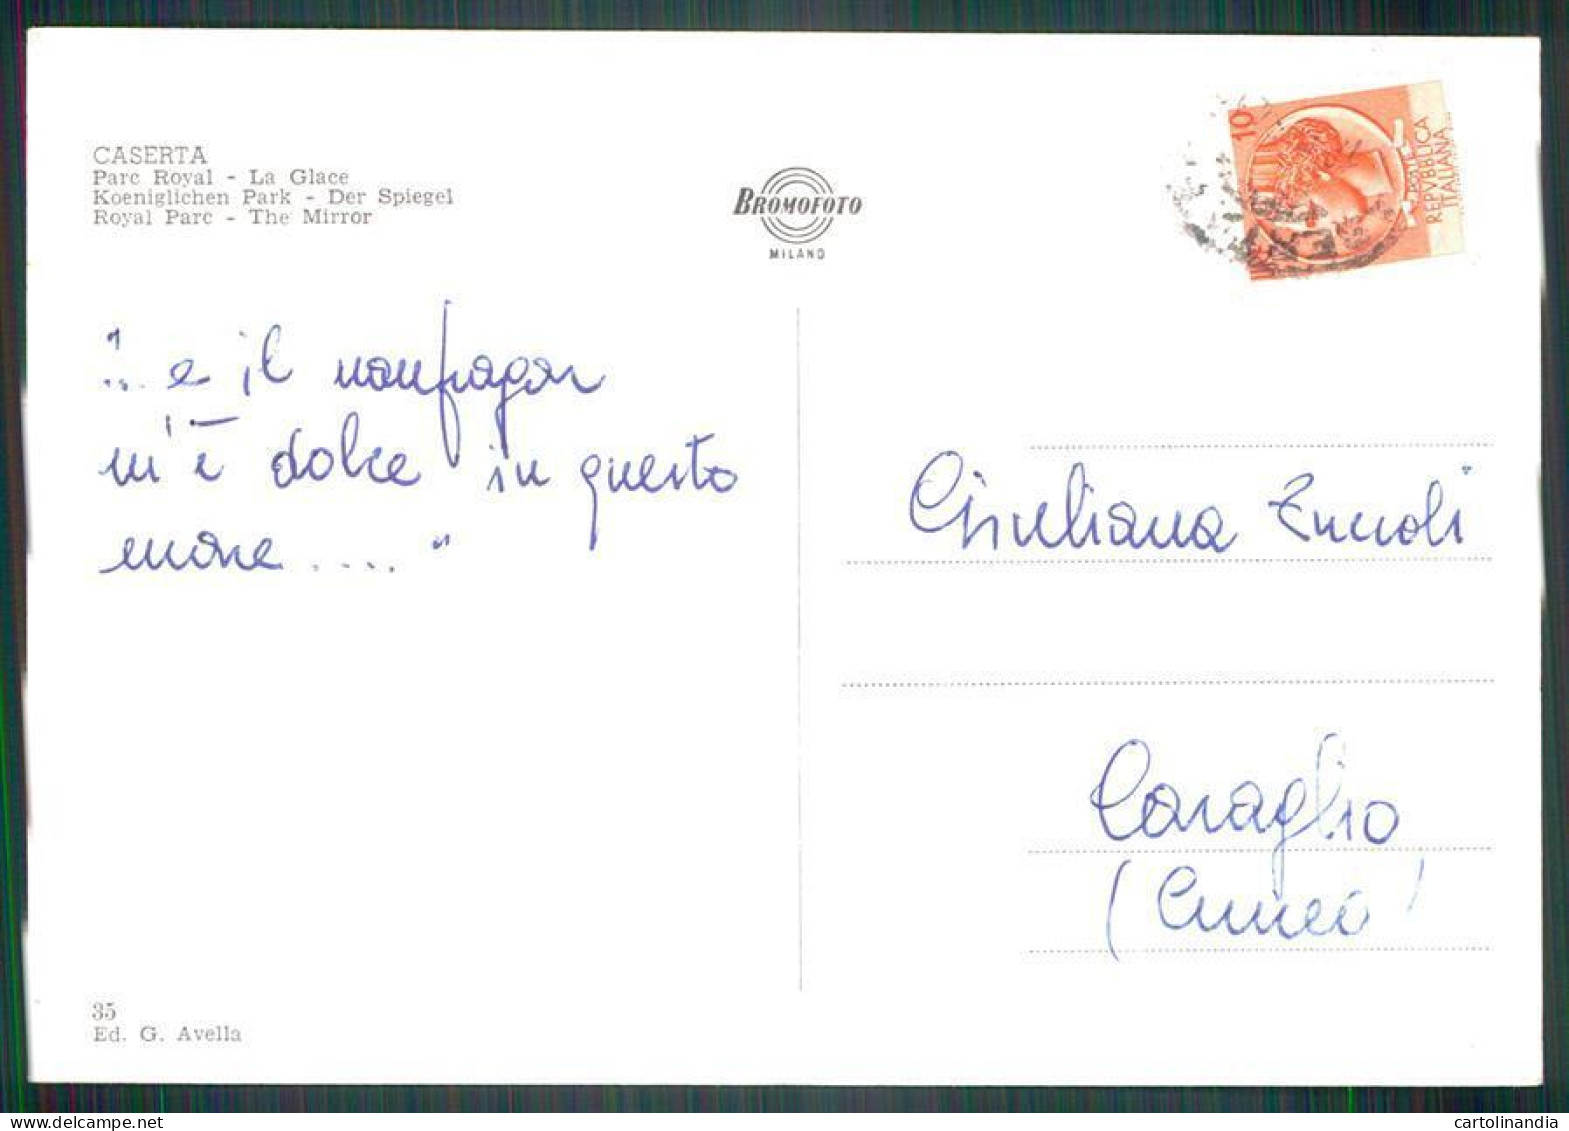 CASERTA
Parc Royal - La Glace
Koeniglichen Park - Der Spiegel
Royal Parc - The Mirror
BROMOFOTO
MILANO
10
POSTE
REPVBBLICA
ITALIANA
"... e il naufragar
m'è dolce in questo
mare ...."
Giuliana
Caraglio
(Cuneo)
35
Ed. G. Avella
delcampe.net
cartolinandia